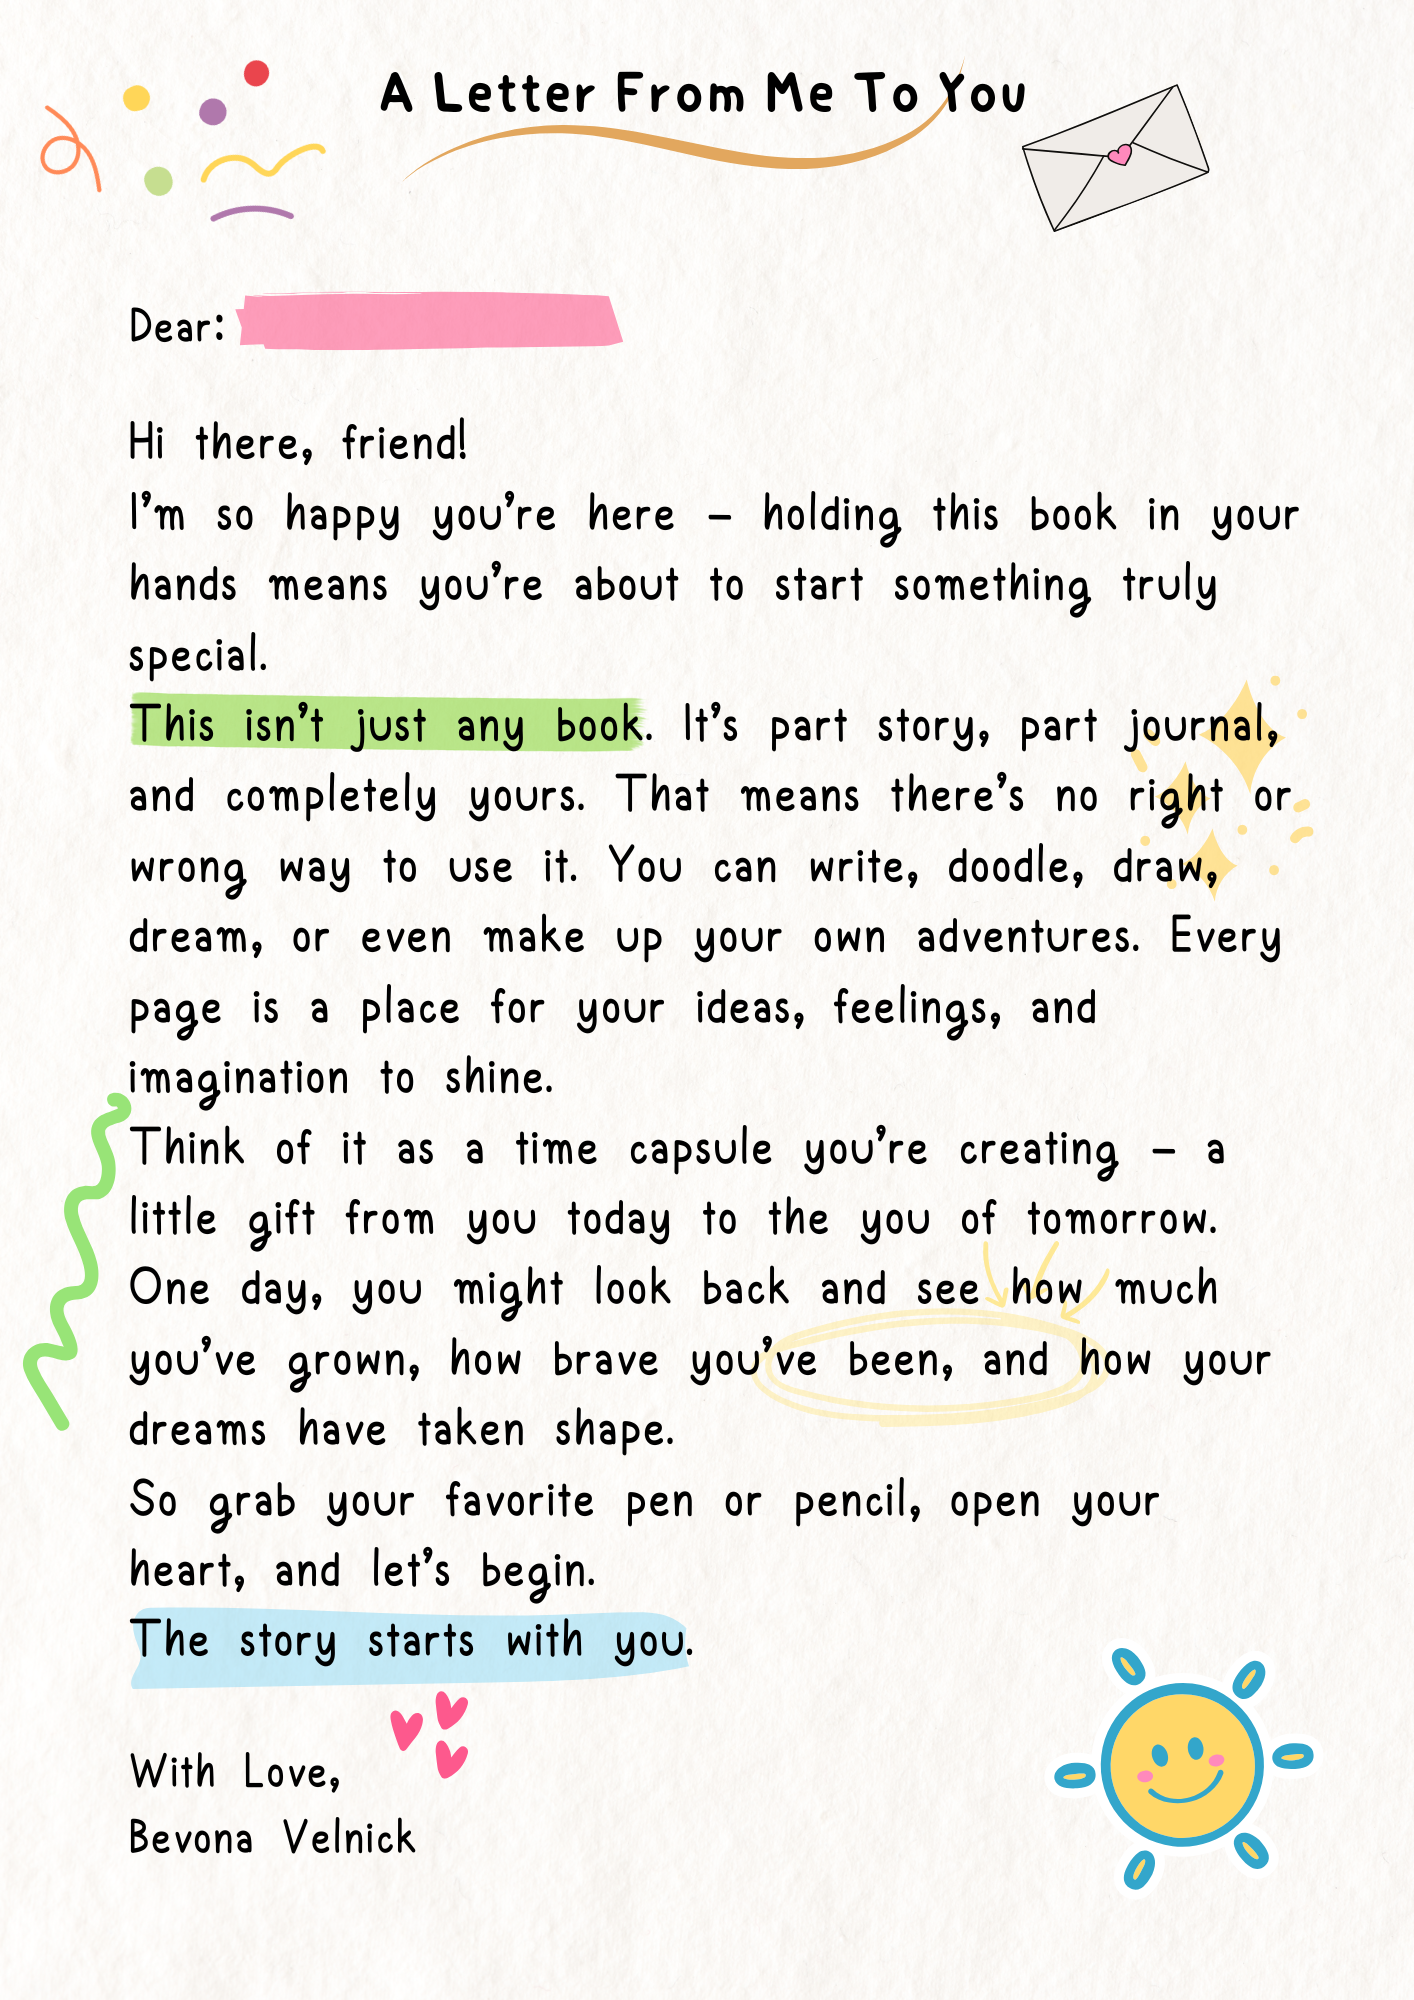 A Letter From Me To You
Dear:
Hi there, friend!
I'm so happy you're here – holding this book in your
hands means you're about to start something truly
special.
This isn't just any book. It's part story, part journal,
and completely yours. That means there's no right or
wrong way to use it. You can write, doodle, draw,
dream, or even make up your own adventures. Every
page is a place for your ideas, feelings, and
imagination to shine.
Think of it as a time capsule you're creating – a
little gift from you today to the you of tomorrow.
One day, you might look back and see how much
you've grown, how brave you've been, and how your
dreams have taken shape.
So grab your favorite pen or pencil, open your
heart, and let's begin.
The story starts with you.
With Love,
Bevona Velnick